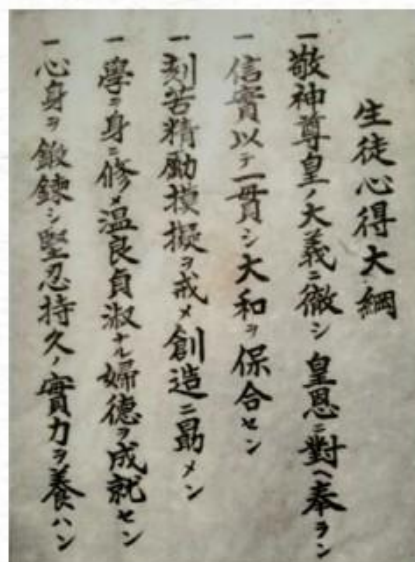 生徒心得大綱
一敬神尊皇ノ大義ニ徹シ皇恩ニ對ヘ奉ラン
一信實以テ一貫シ大和ヲ保合セン
一刻苦精勵模擬ヲ戒メ創造ニ勗メン
一學ヲ身ニ修メ温良貞淑ナル婦德ヲ成就セン
一心身ヲ鍛錬シ堅忍持久ノ實力ヲ養ハン